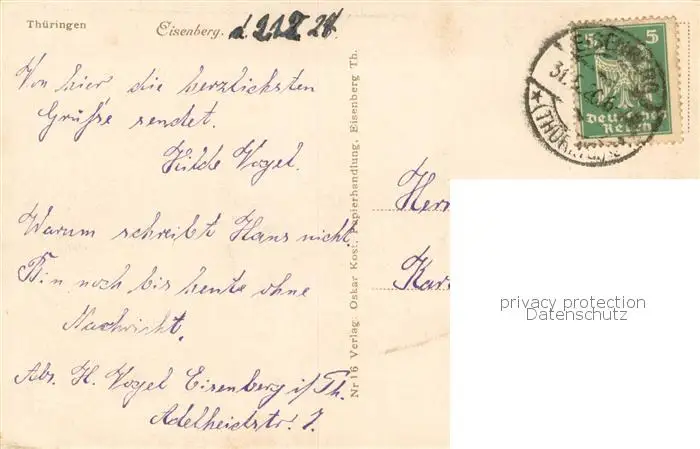 Thüringen
Eisenberg.
Von hier die herzlichsten
Grüße sendet.
Hilde Vogel.
Warum schreibt Hans nicht,
Bin noch bis heute ohne
Nachricht,
Abs. H. Vogel Eisenberg i/Th.
Adelheidstr. 7.
Nr 16 Verlag: Oskar Kost, Papierhandlung, Eisenberg Th.
5 5
Deutsches
Reich
EISENBERG
(THÜRINGEN)
Herr
Kar
privacy protection
Datenschutz